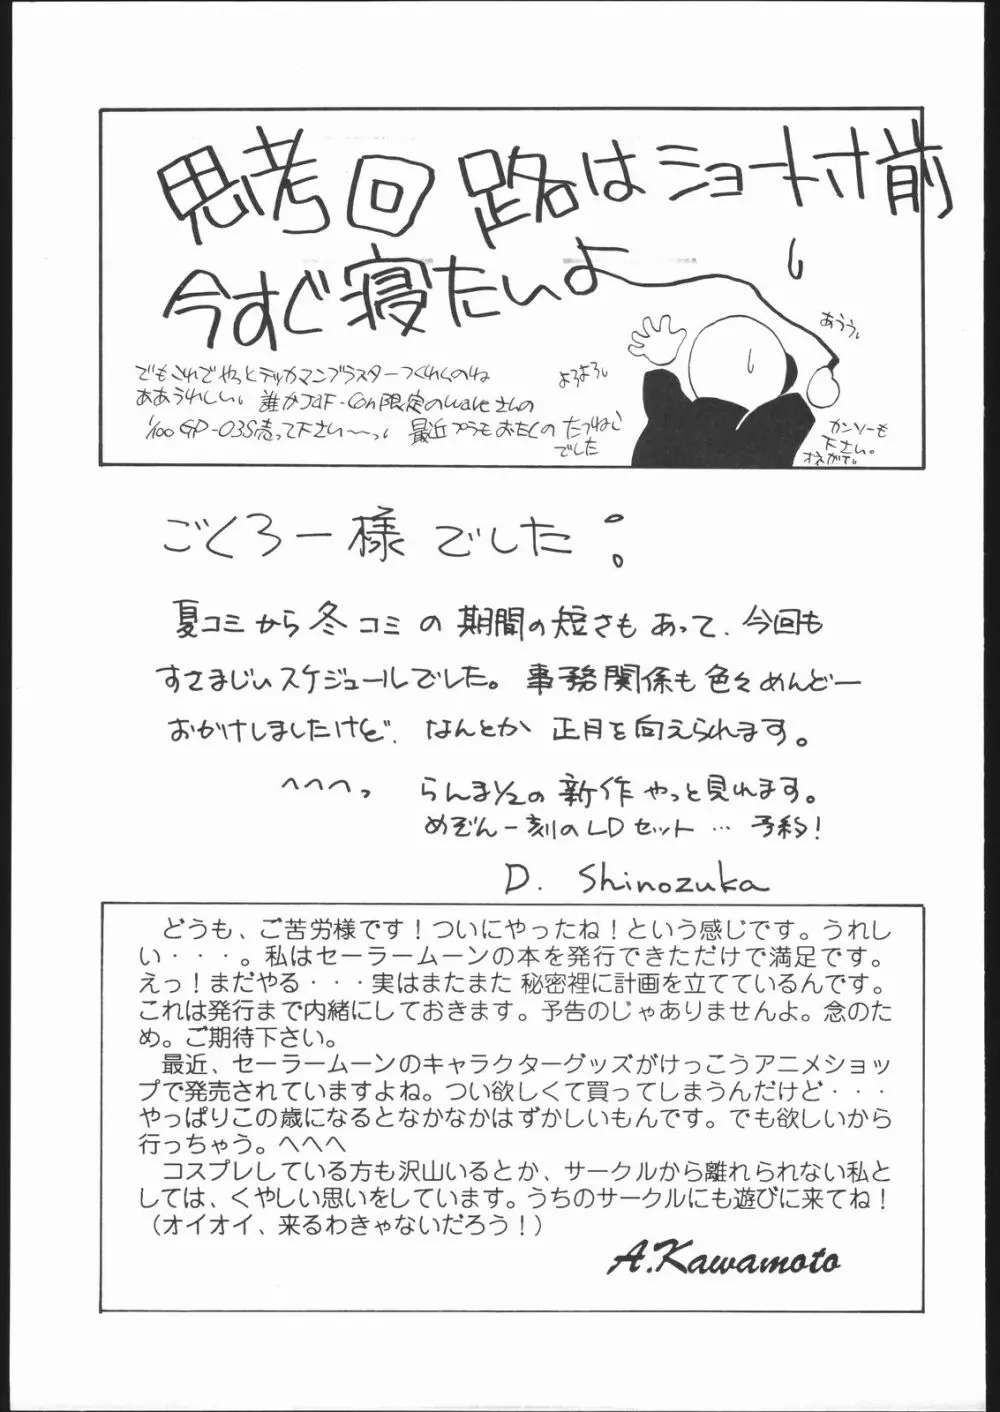 思考回路はショートサ前
今すぐ寝たいよ
あうう。
よろよろ。
でもこれでやっとテッカマンブラスターつくれるのね
ああうれしい。誰かJAF-Con限定のwaveさんの
1/100 GP-03S売って下さい〜っ。最近プラモおたくの たつねじ
でした
カンソーも
下さい。
オネガイ。
ごくろー様でした!
夏コミから冬コミの期間の短さもあって、今回も
すさまじいスケジュールでした。事務関係も色々めんどー
おかけしましたけど、なんとか正月を向えられます。
へへへっ らんま1/2の新作やっと見れます。
めぞん一刻のLDセット…予約!
D. Shinozuka
どうも、ご苦労様です!ついにやったね!という感じです。うれし
い・・・。私はセーラームーンの本を発行できただけで満足です。
えっ!まだやる・・・実はまたまた 秘密裡に計画を立てているんです。
これは発行まで内緒にしておきます。予告のじゃありませんよ。念のた
め。ご期待下さい。
最近、セーラームーンのキャラクターグッズがけっこうアニメショッ
プで発売されていますよね。つい欲しくて買ってしまうんだけど・・・
やっぱりこの歳になるとなかなかはずかしいもんです。でも欲しいから
行っちゃう。へへへ
コスプレしている方も沢山いるとか、サークルから離れられない私と
しては、くやしい思いをしています。うちのサークルにも遊びに来てね!
(オイオイ、来るわきゃないだろう!)
A.Kawamoto